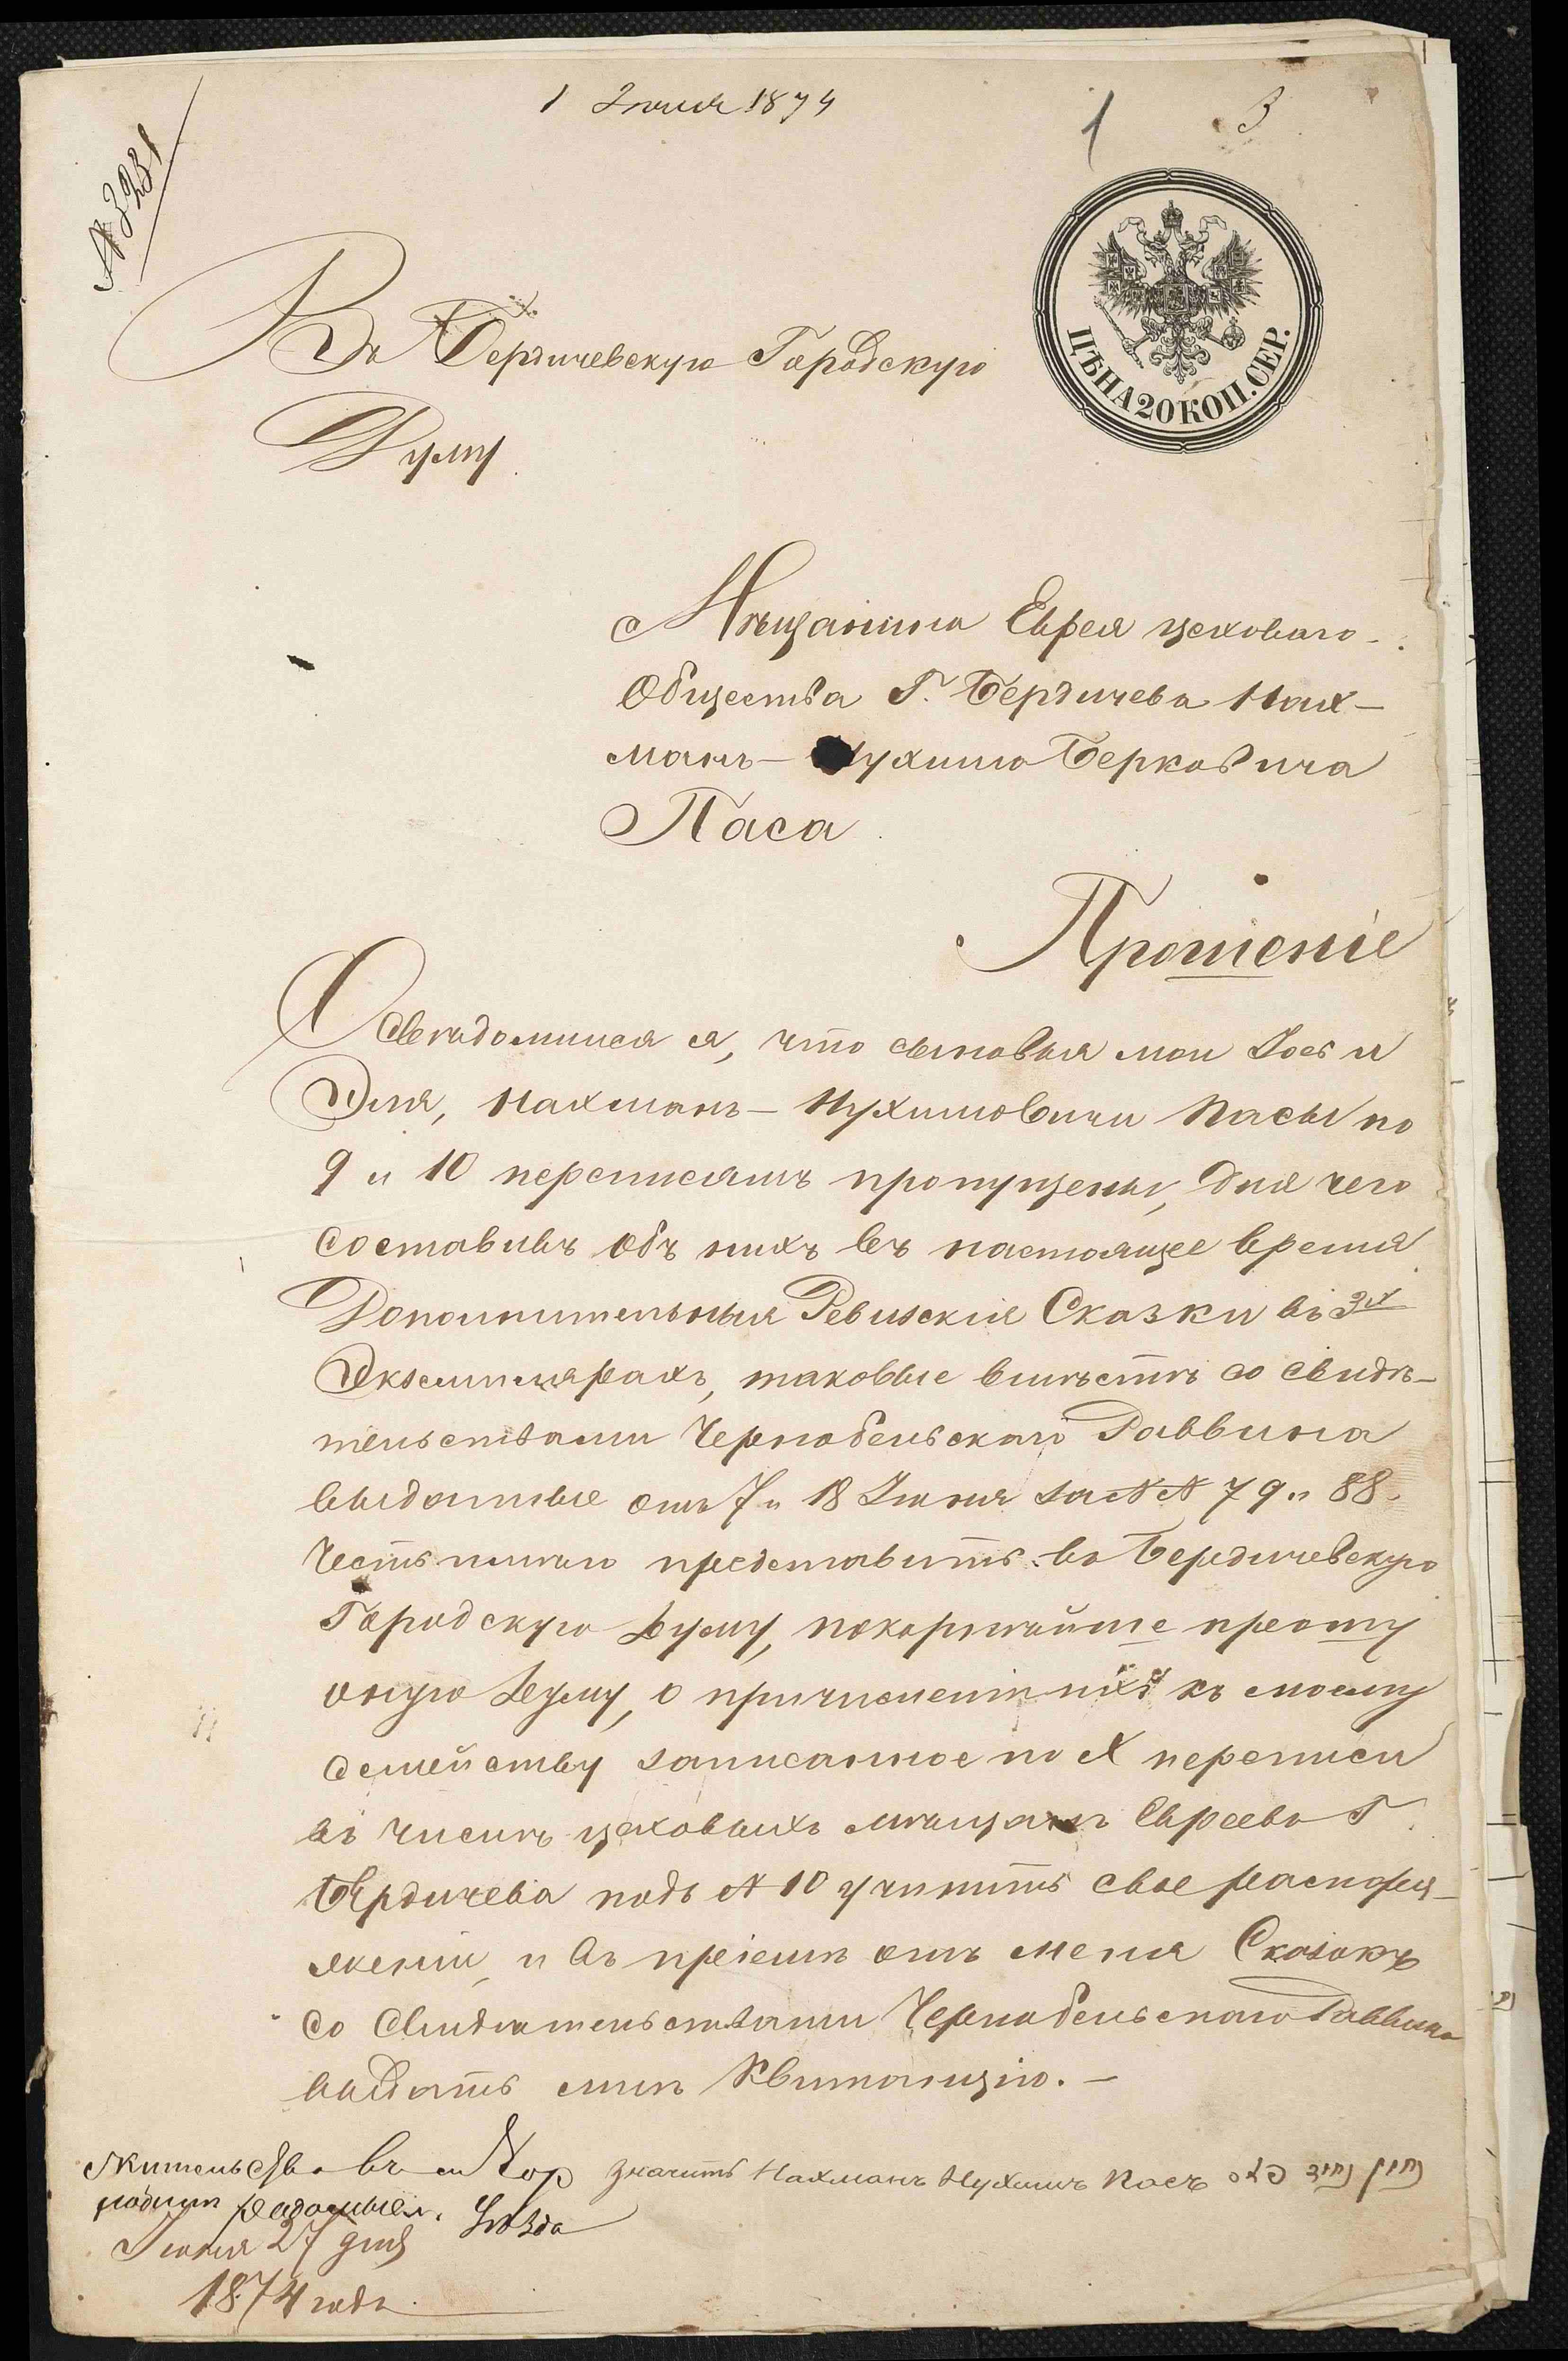 1 Июля 1874
1 3
№ 3231
ЦѢНА 20 КОП. СЕР.
Въ Бердичевскую Городскую
Думу
Мѣщанина Еврея цеховаго
Общества Г. Бердичева Нах-
манъ-Нухима Берковича
Паса
Прошеніе
Осведомился я, что сыновья мои Іось и
Эля, Нахманъ-Нухимовичи Пасы по
9 и 10 переписямъ пропущены, для чего
составивъ объ нихъ въ настоящее время
Дополнительныя Ревизскія Сказки въ 3хъ
Экземплярахъ, таковые вмѣстѣ со свидѣ-
тельствами Чернобельскаго Раввина
выданные отъ 7 и 18 Іюня за №№ 79 и 88.
Честь имѣю представить въ Бердичевскую
Городскую Думу, покорнѣйше прошу
оную Думу, о причисленіи ихъ къ моему
семейству записанное по X переписи
въ числѣ цеховыхъ мѣщанъ Евреевъ Г.
Бердичева подъ № 10 учинить свое распоря-
женіи, и въ пріемѣ отъ меня Сказокъ
со Свидѣтельствами Чернобельскаго Раввина
выдать мнѣ Квитанцію. —
Жительство въ м Хор значитъ Нахманъ Нухимъ Пасъ
радомысл. уѣзда
Іюня 27 дня
1874 года